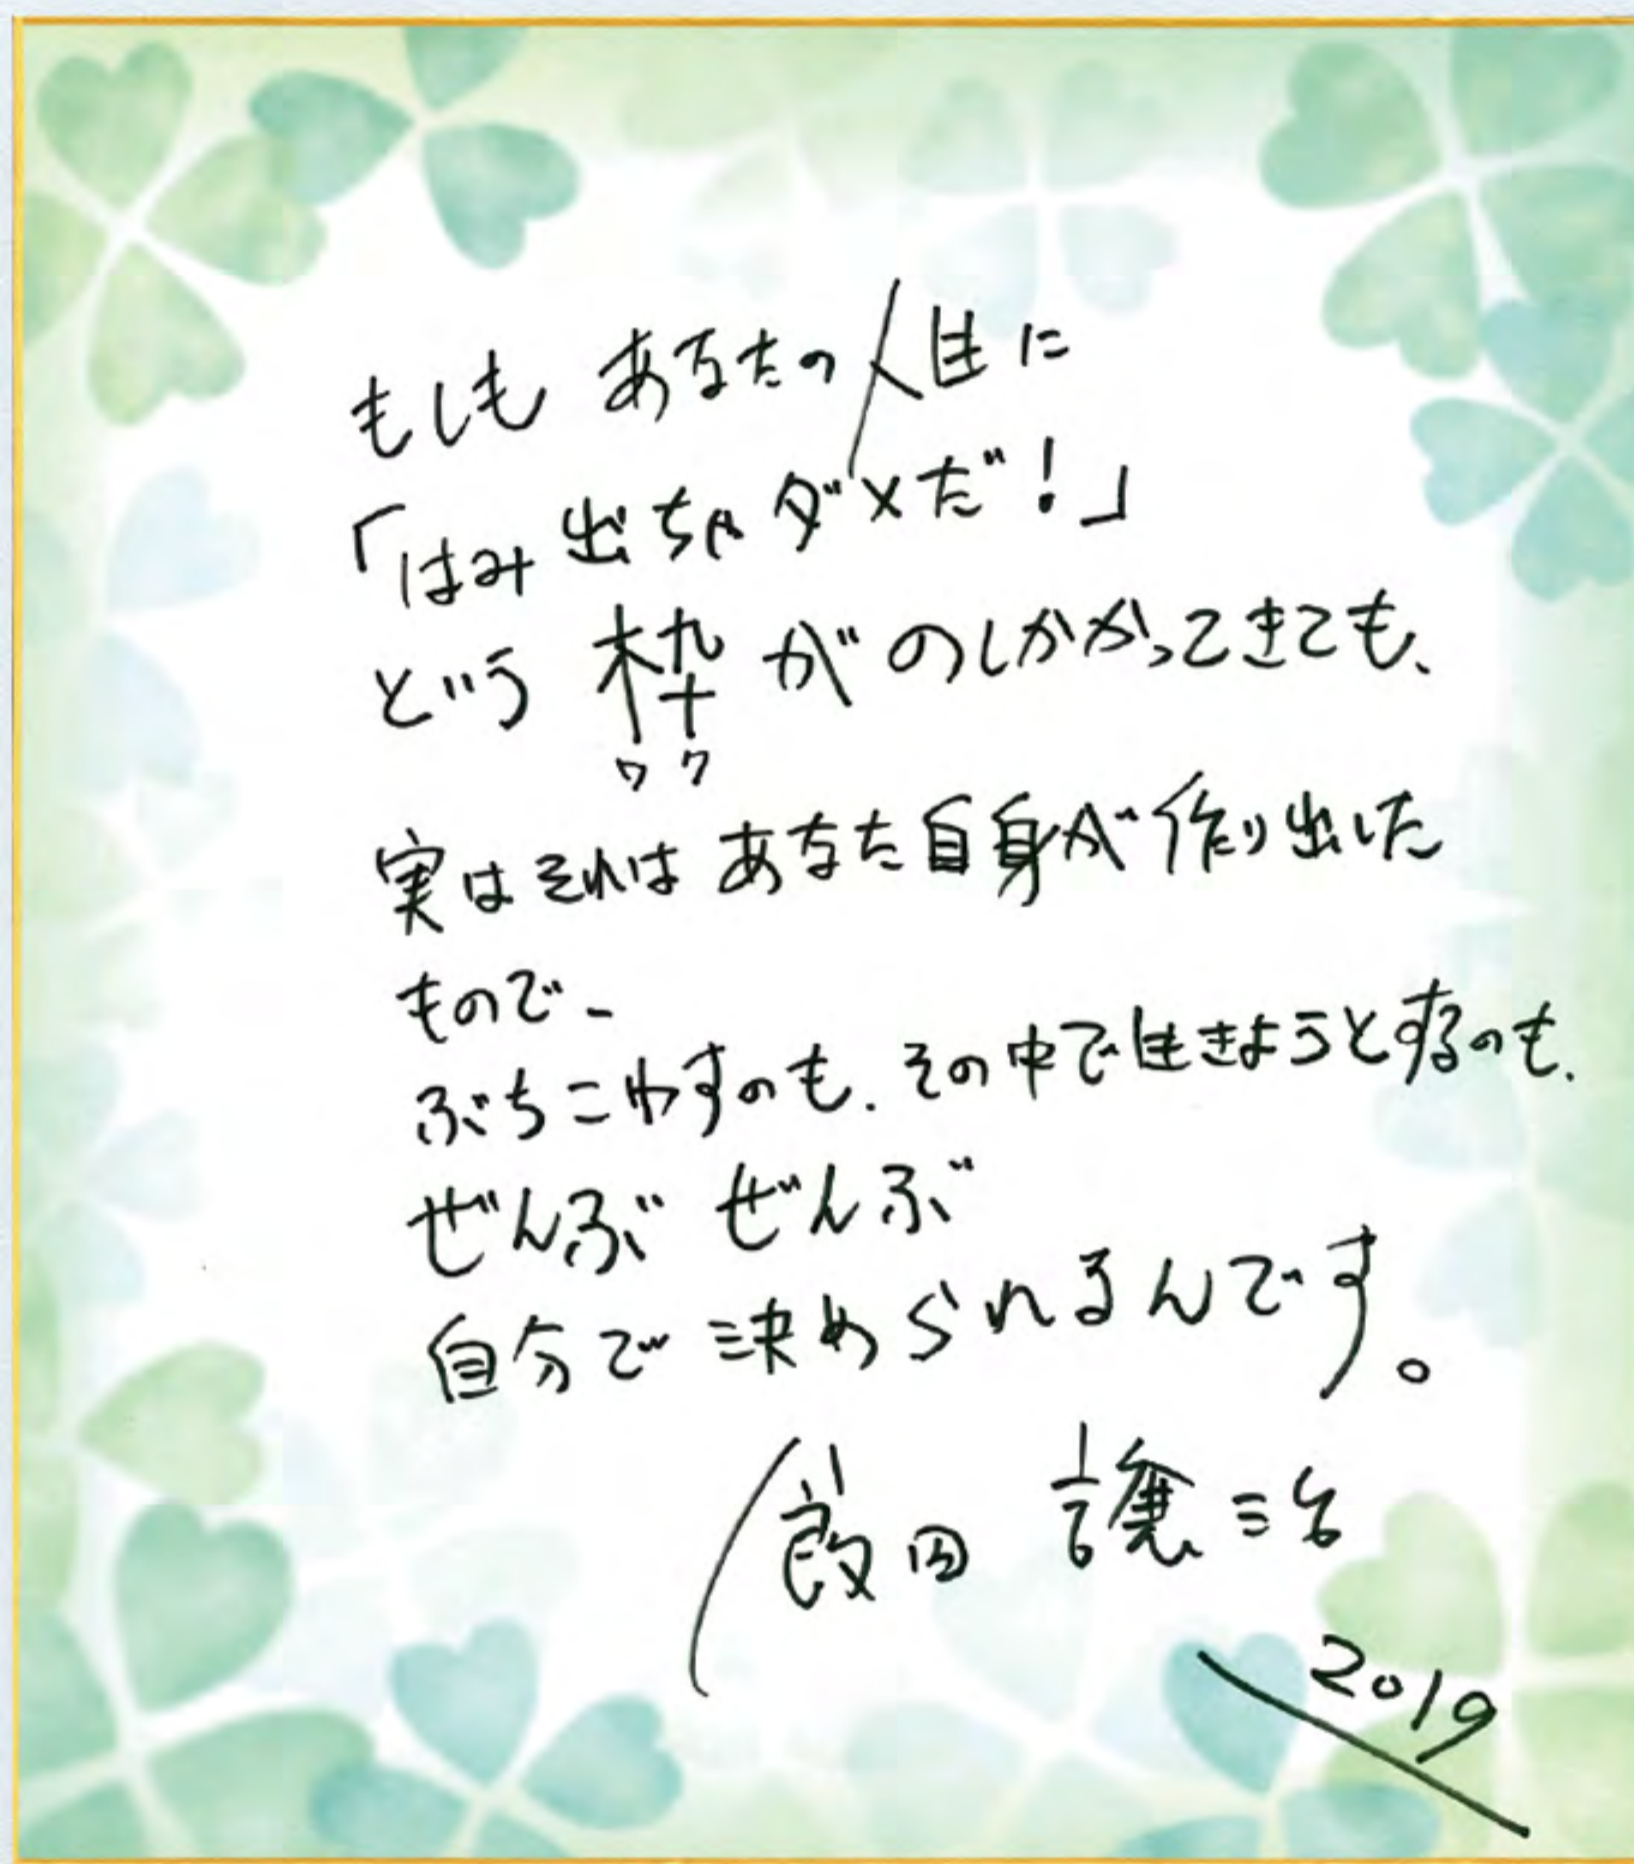 もしも あなたの人生に
「はみ出ちゃダメだ!」
という 枠 がのしかかってきても、
ワク
実はそれは あなた自身が作り出した
もので-
ぶちこわすのも、その中で生きようとするのも、
ぜんぶ ぜんぶ
自分で決められるんです。
飯田 譲治
2019